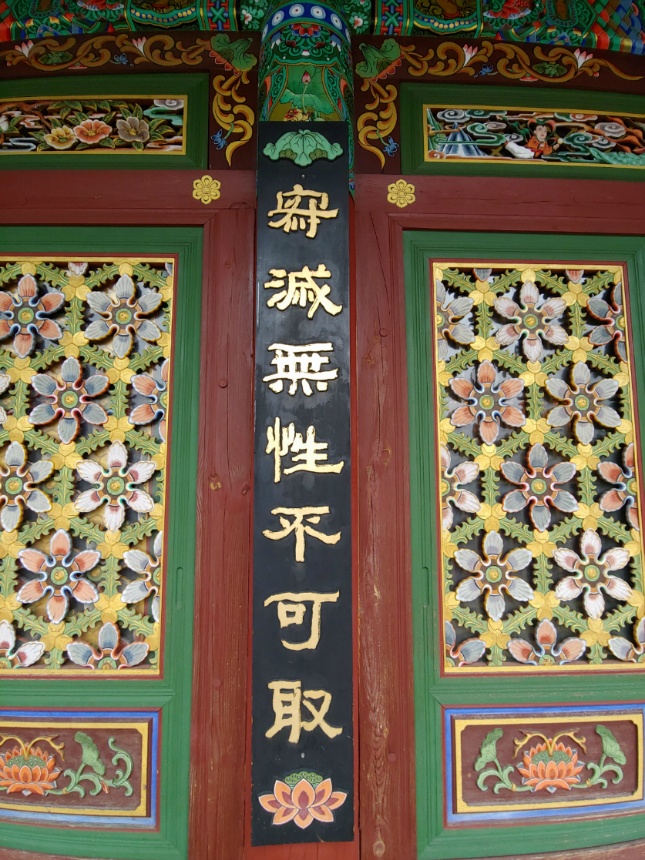 寂滅無性不可取